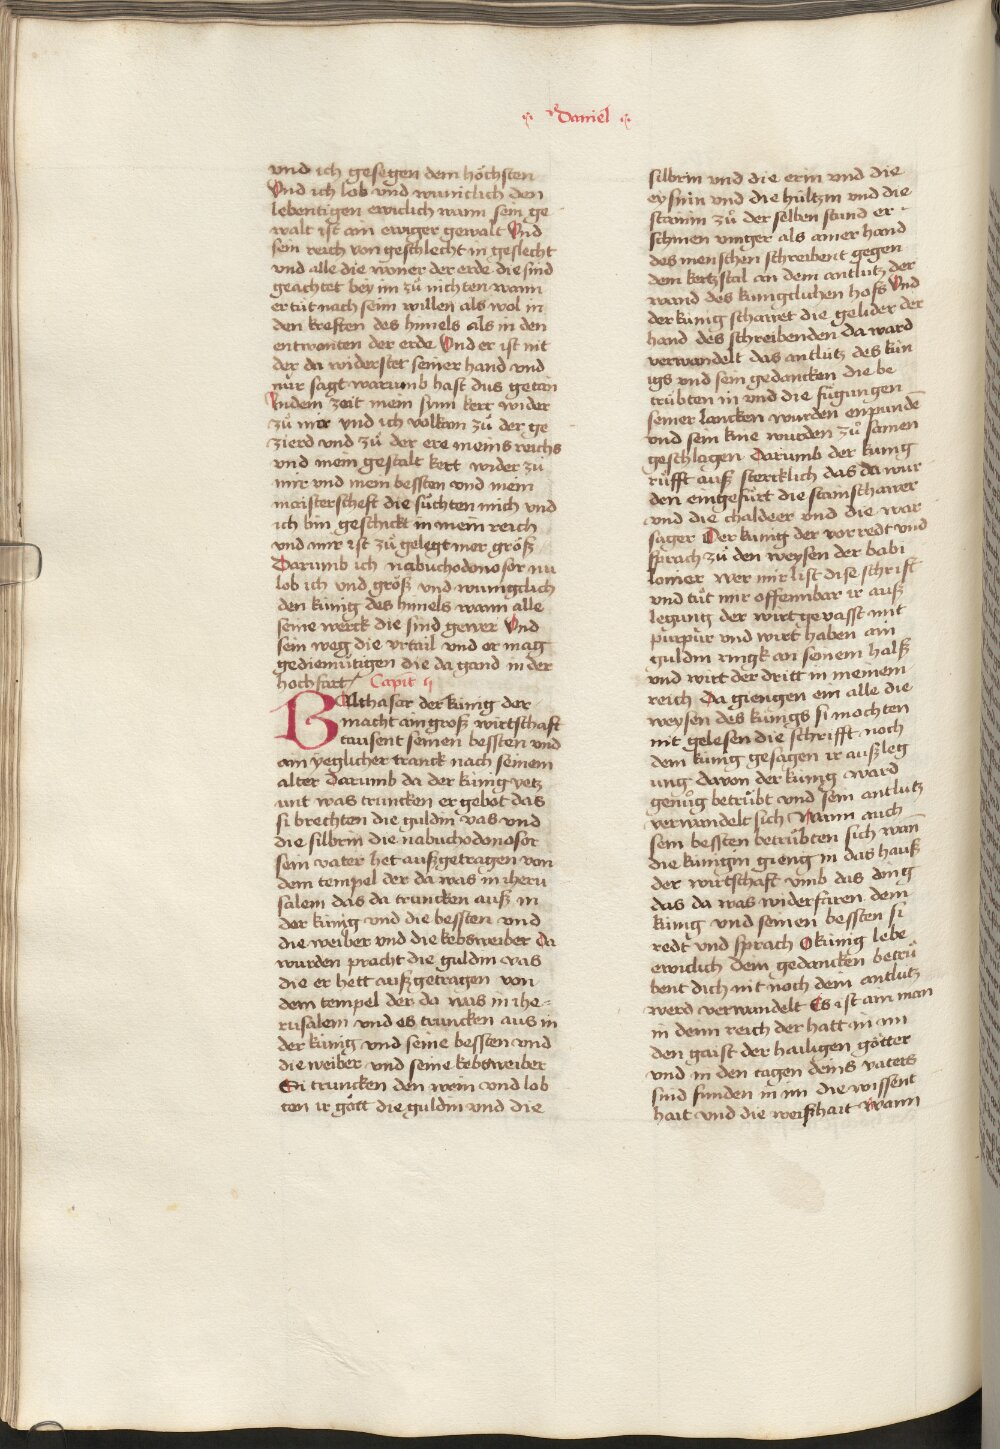 Daniel
vnd ich gesegen dem höchsten
Vnd ich lob vnd wuniclich den
lebentigen ewiclich wann sein ge
walt ist ain ewiger gewalt Vnd
sein reich von geschlecht in geslecht
vnd alle die woner der erde die sind
geachtet bey im zů nichten wann
er tůt nach seim willen als wol in
den kreften des himels als in den
entwonten der erde Vnd er ist nit
der da widerstet seiner hand vnd
nůr sagt warumb hast dus getan
In dem zeit mein synn kert wider
zů mir vnd ich volkom zů der ge
zierd vnd zů der ere meins reichs
vnd mein gestalt kert wider zů
mir vnd mein bessten vnd mein
maisterscheft die sůchten mich vnd
ich bin geschickt in mein reich
vnd mir ist zů gelegt mer größ
Darumb ich nabuchodonosor nu
lob ich vnd größ vnd wunigclich
den künig des himels wann alle
seine werck die sind gewer Vnd
sein weg die vrtail vnd er mag
gediemütigen die da gand in der
hochfart Capit ij
BAlthasar der künig der
macht ain groß wirtschaft
tausent seinen bessten vnd
ain yeglicher tranck nach seinem
alter Darumb da der künig yetz
unt was truncken er gebot das
si brechten die guldin vas vnd
die silbrin die nabuchodonosor
sein vater het außgetragen von
dem tempel der da was in iheru
salem das da truncken auß in
der künig vnd die bessten vnd
die weiber vnd die kebsweiber Da
wurden pracht die guldin vas
die er hett außgetragen von
dem tempel der da was in ihe-
rusalem vnd es truncken aus in
der künig vnd seine bessten vnd
die weiber vnd seine kebsweiber
Si truncken den wein vnd lob
ten ir gött die guldin vnd die
silbrin vnd die erin vnd die
eysnin vnd die hültzin vnd die
stainin zů der selben stund er-
schinen vinger als ainer hand
des menschen schreibent gegen
dem kertzstal an dem antlutz der
wand des künigclichen hofs Vnd
der künig schawet die gelider der
hand des schreibenden da ward
verwandelt das antlutz des kün
igs vnd sein gedancken die be
trübten in vnd die fügungen
seiner lancken wurden enpunden
vnd sein knie wurden zů samen
geschlagen Darumb der künig
růfft auß stercklich das da wur
den eingefürt die stainschawer
vnd die chaldeer vnd die war
sager Der künig der vor redt vnd
sprach zů den weysen der babi
lonier wer mir list dise schrift
vnd tůt mir offennbar ir auß
legung der wirt gevasst mit
purpur vnd wirt haben ain
guldin ringk an seinem halß
vnd wirt der dritt in meinem
reich Da giengen ein alle die
weysen des künigs si mochten
nit gelesen die schrifft noch
dem künig gesagen ir außleg
ung davon der künig ward
genůg betrübt vnd sein antlutz
verwandelt sich Wann auch
sein bessten betrübten sich wan̄
die künigin gieng in das hauß
der wirtschaft vmb das ding
das da was widerfaren dem
künig vnd seinen bessten si
redt vnd sprach O künig lebe
ewiclich dein gedancken betrü
bent dich nit noch dein antlutz
werd verwandelt Es ist ain man
in deim reich der hatt in im
den gaist der hailigen götter
vnd in den tagen deins vaters
sind funden in im die wissent
hait vnd die weißhait Wann